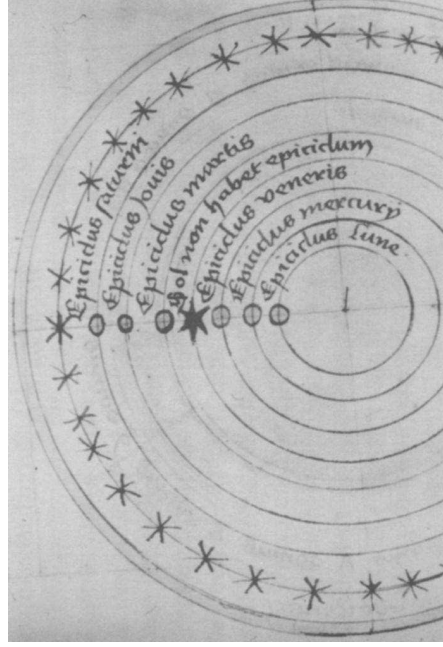 Epiciclus saturni
Epiciclus Iouis
Epiciclus martis
Sol non habet epiciclum
Epiciclus veneris
Epiciclus mercurij
Epiciclus Lune